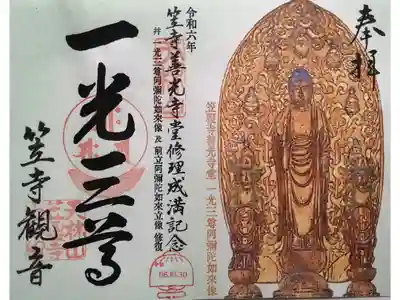 奉拝
笠覆寺善光寺堂 一光三尊阿彌陀如来像
令和六年
笠寺善光寺堂修理成満記念
并 一光三尊阿彌陀如来像 及 前立阿彌陀如来立像 修復
一光三尊
笠寺観音